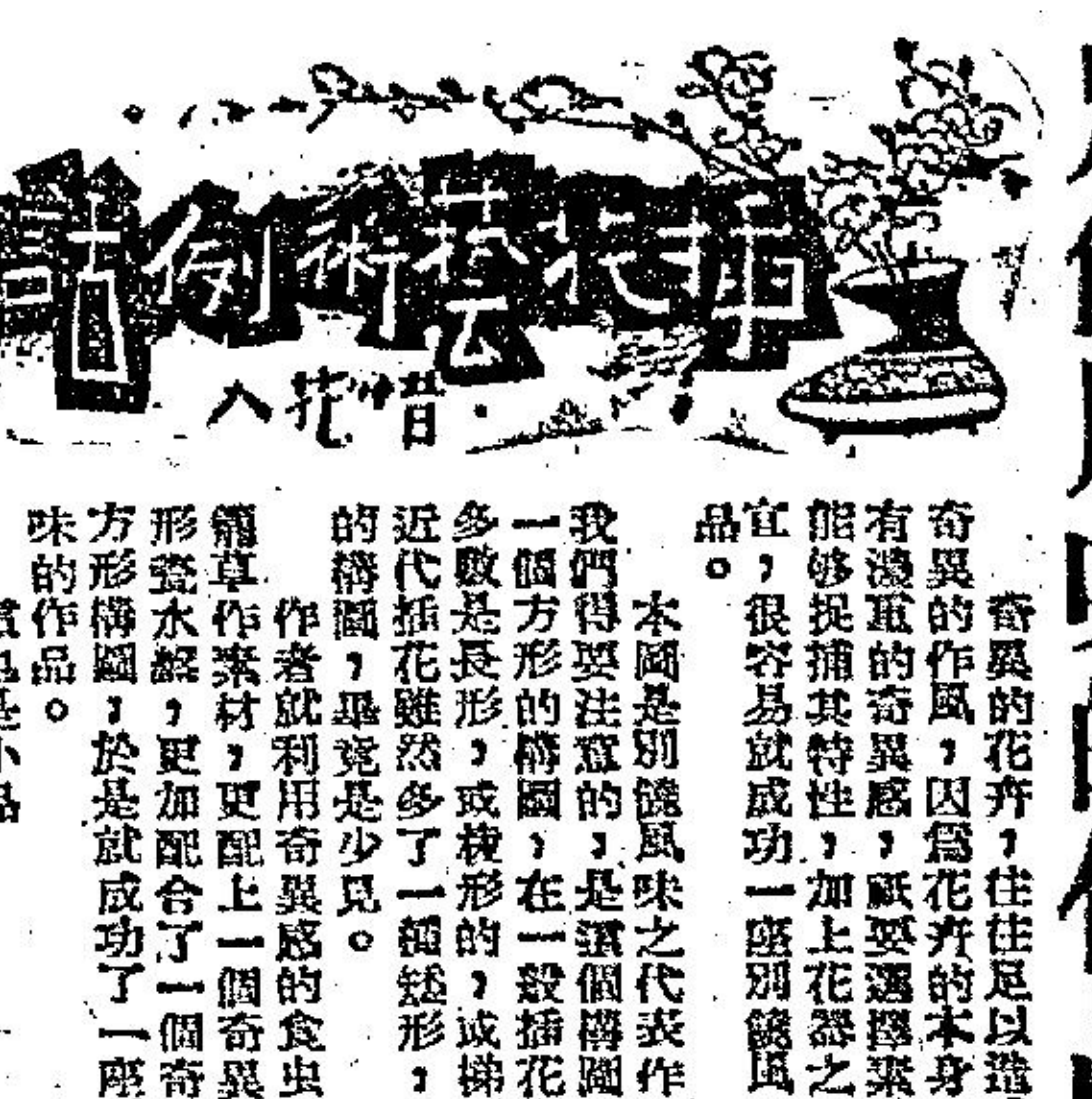 插花藝術創
惜花人
奇異的花卉，往往足以造
奇異的作風，因爲花卉的本身
有濃重的奇異感，祇要選擇素
能够捉捕其特性，加上花器之
宜，很容易就成功一座別饒風
品。
本圖是別饒風味之代表作
我們得要注意的，是這個構圖
一個方形的構圖，在一般插花
多數是長形，或棱形的，或梯
近代插花雖然多了一種矮形，
的構圖，畢竟是少見。
作者就利用奇異感的食虫
籠草作素材，更配上一個奇異
形瓷水盤，更加配合了一個奇
方形構圖，於是就成功了一座
味的作品。
是小品